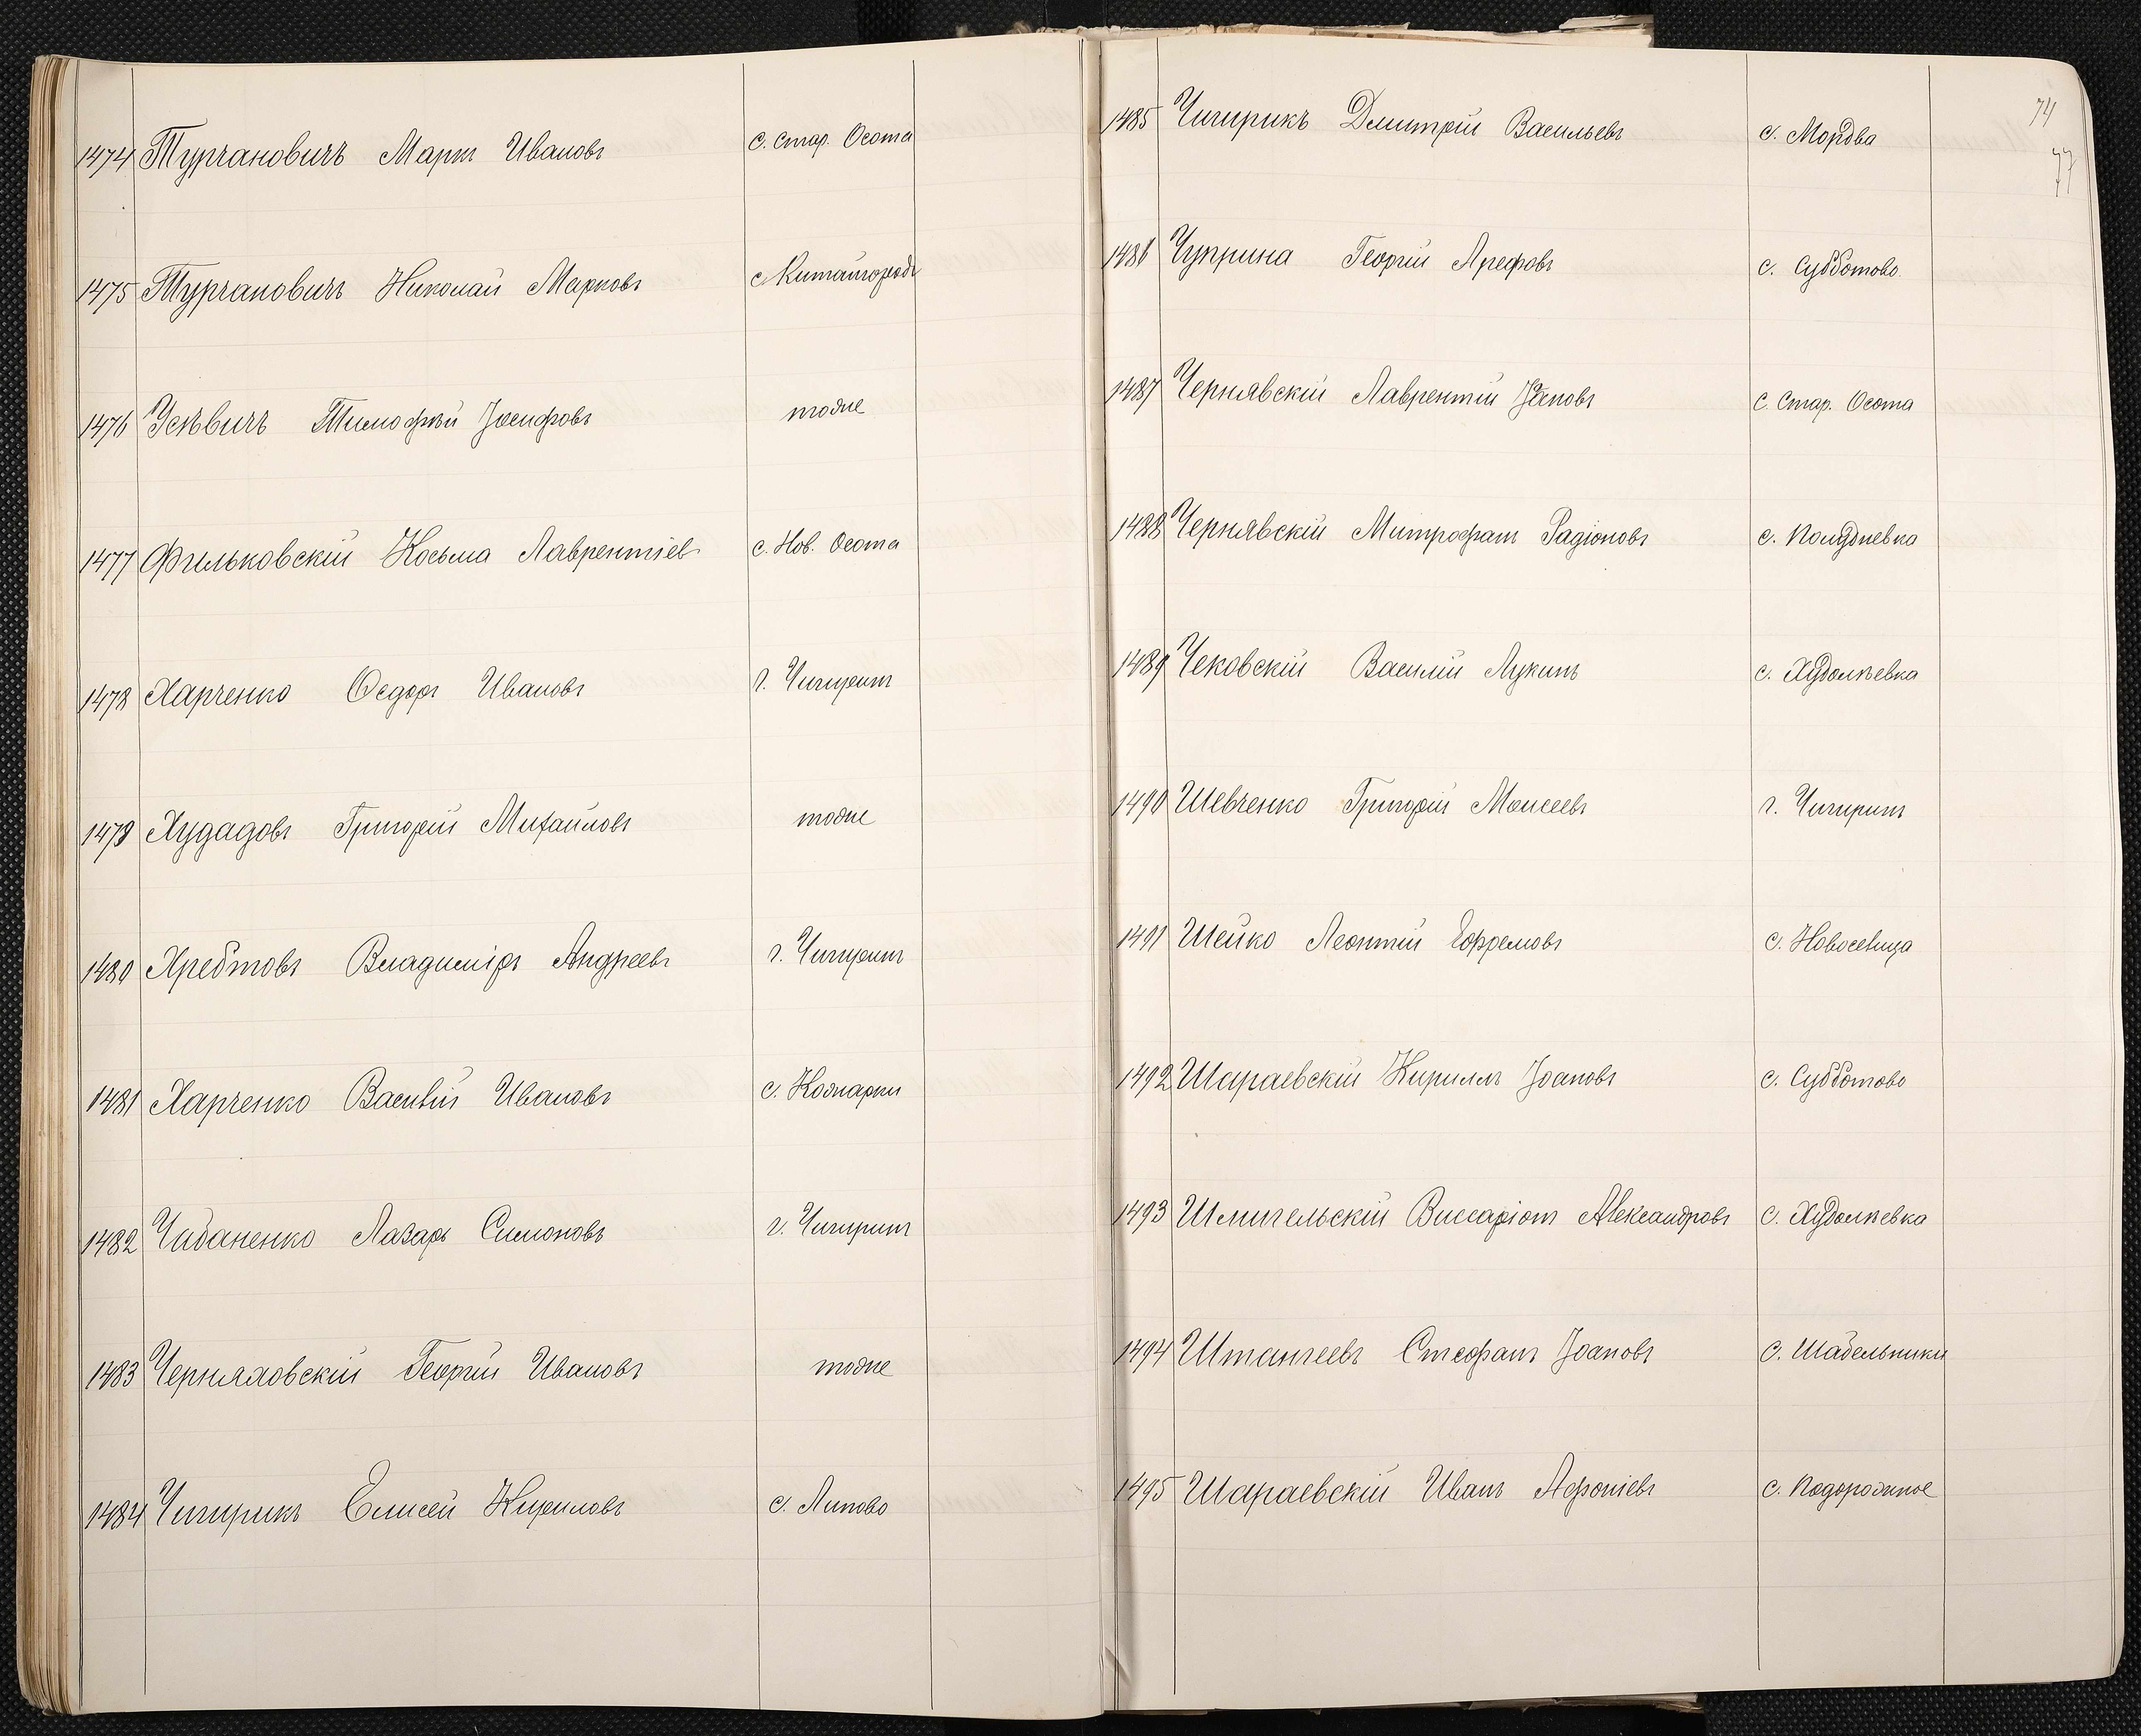 1474 Турчановичъ Маркъ Ивановъ с. Стар. Осота
1475 Турчановичъ Николай Марковъ с. Китайгородъ
1476 Усѣвичъ Тимофѣй Іосифовъ тоже
1477 Фильковскій Косьма Лаврентіев с. Нов. Осота
1478 Харченко Ѳедоръ Ивановъ г. Чигиринъ
1479 Худадовъ Григорій Михайловъ тоже
1480 Хребтовъ Владиміръ Андреевъ г. Чигиринъ
1481 Харченко Василій Ивановъ с. Кожарки
1482 Чибаненко Лазарь Симоновъ г. Чигиринъ
1483 Черняховскій Георгій Ивановъ тоже
1484 Чигирикъ Елисей Кириловъ с. Липово
74
77
1485 Чигирикъ Дмитрій Васильевъ с. Мордва
1486 Чуприна Георгій Арефовъ с. Субботово
1487 Чернявскій Лаврентій Іоановъ с. Стар. Осота
1488 Чернявскій Митрофанъ Радіоновъ с. Полудневка
1489 Чековскій Василій Лукинъ с. Худолѣевка
1490 Шевченко Григорій Моисеевъ г. Чигиринъ
1491 Шейко Леонтій Ефремовъ с. Новоселица
1492 Шараевскій Кириллъ Іоановъ с. Субботово
1493 Шмигельскій Виссаріонъ Александровъ с. Худолѣевка
1494 Штангеевъ Стефанъ Іоановъ с. Шабельники
1495 Шараевскій Иванъ Афоніевъ с. Подорожное